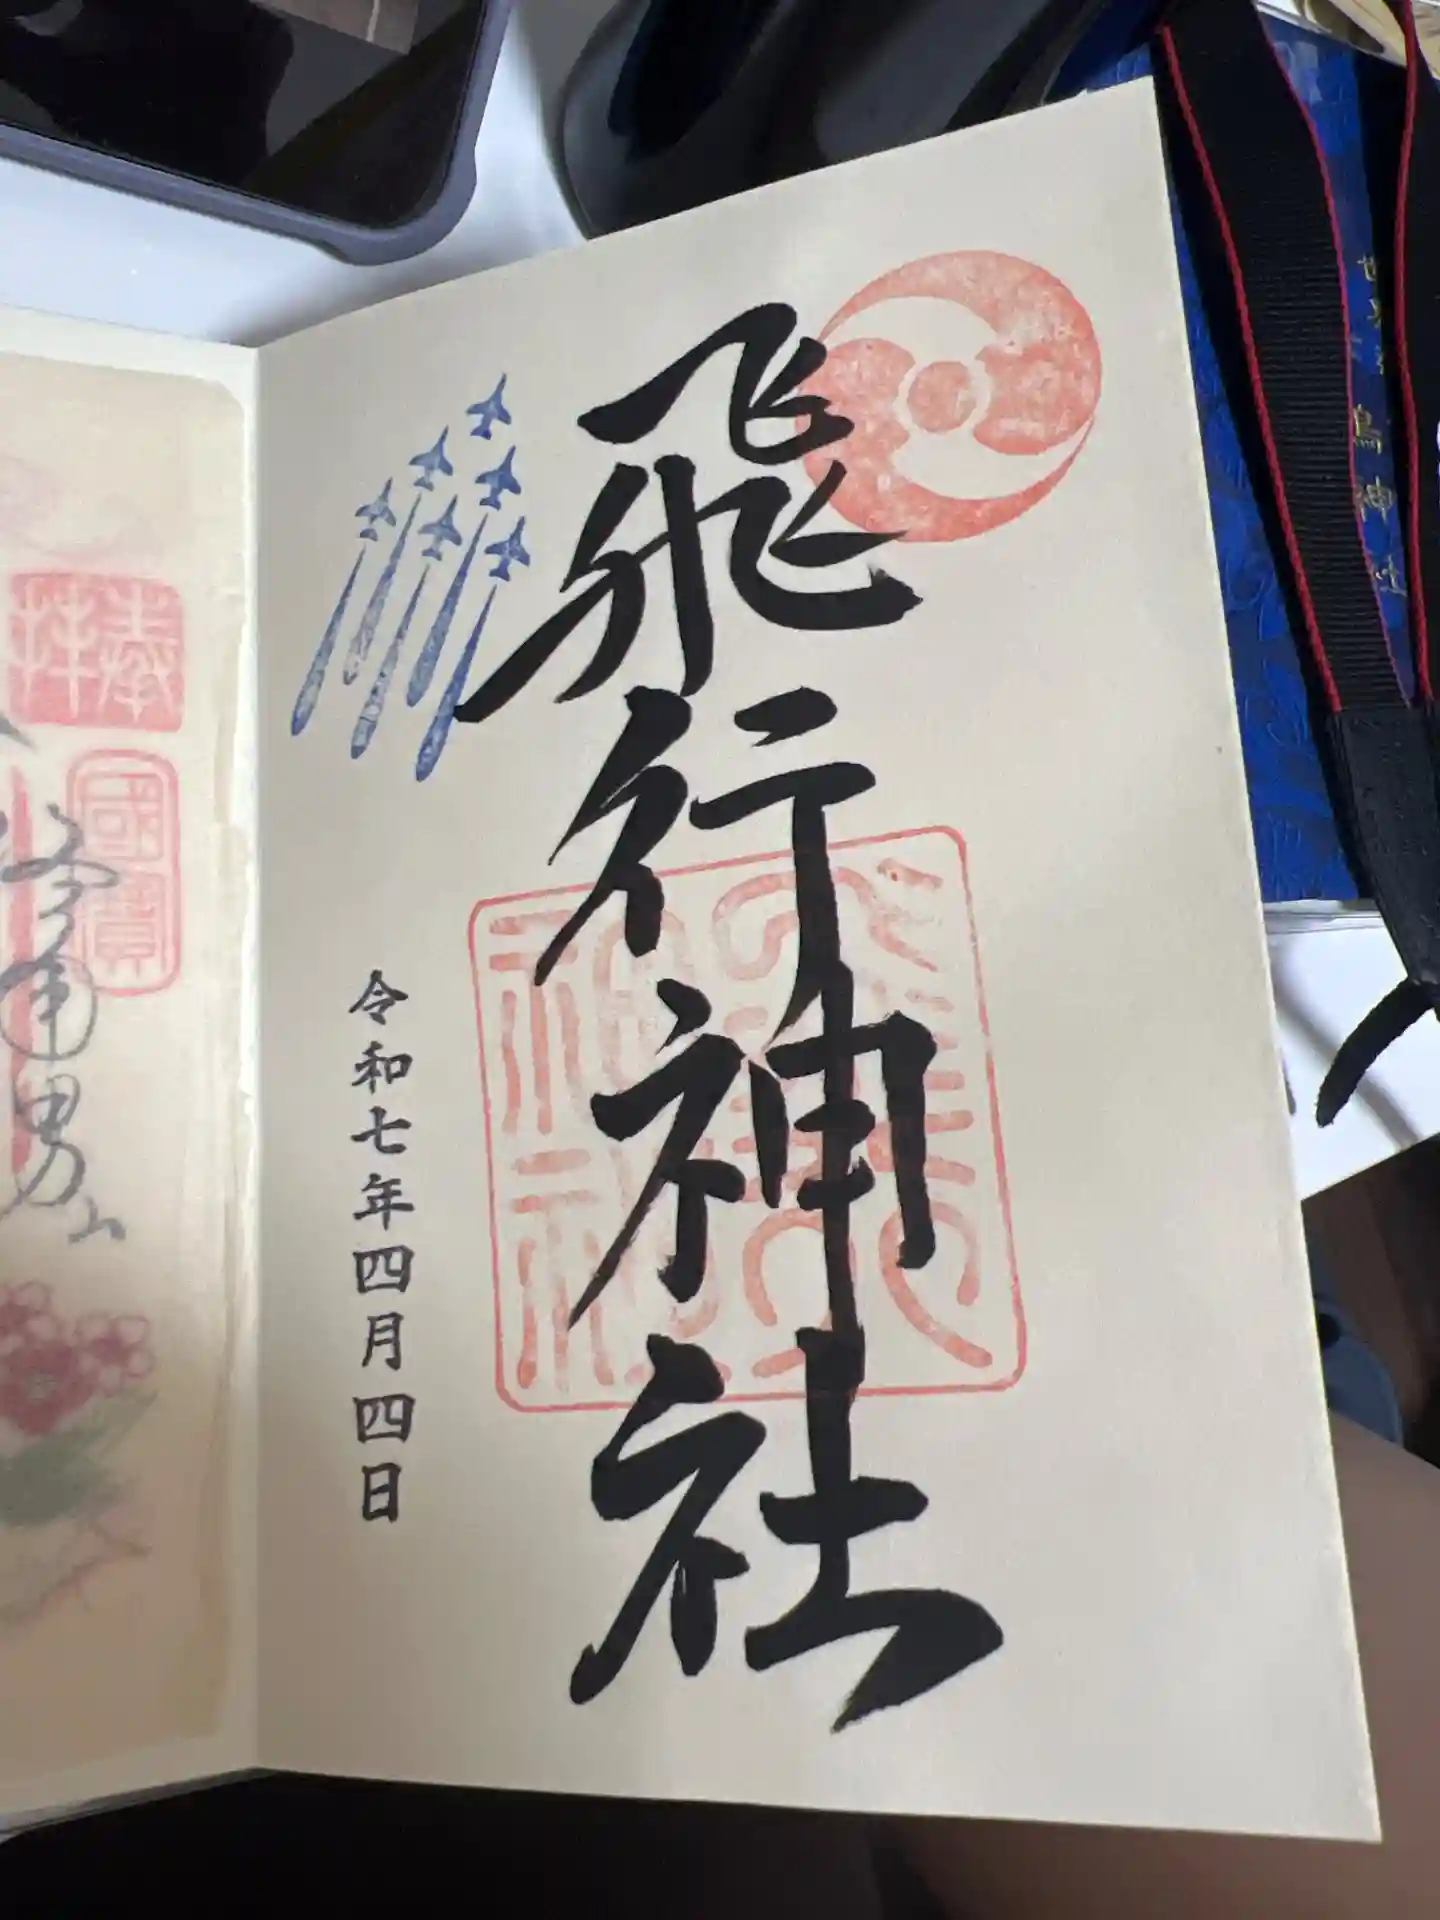 飛行神社
令和七年四月四日
奉拝
國寶
男山
鳥神社